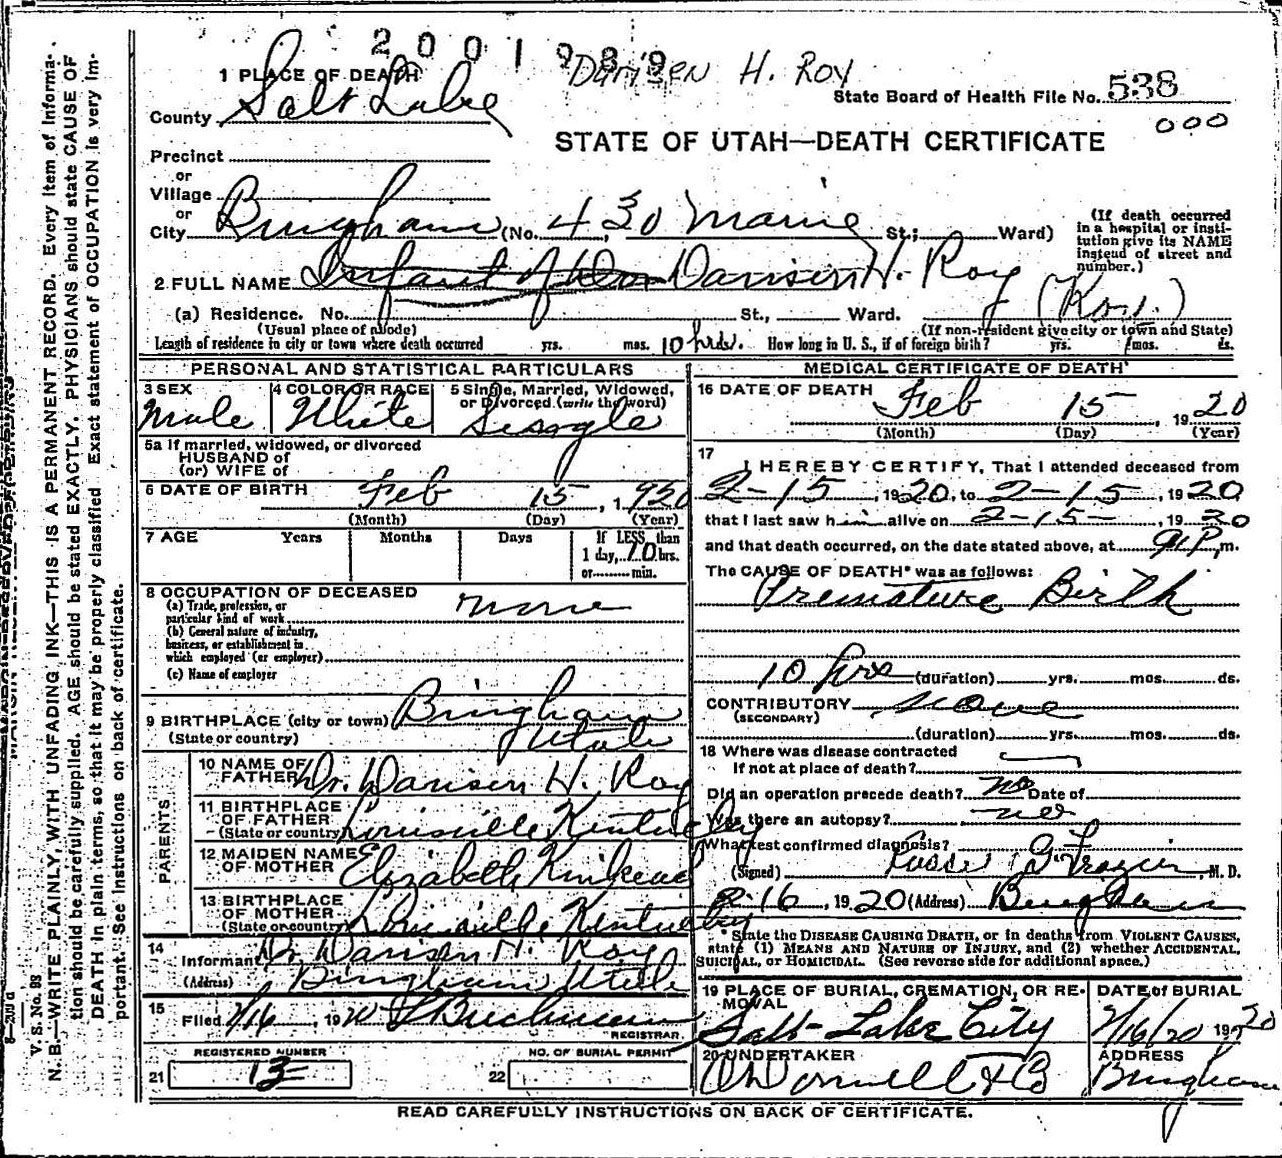 2001989
Darisen H. Roy
1 PLACE OF DEATH
State Board of Health File No. 538
County Salt Lake
000
STATE OF UTAH—DEATH CERTIFICATE
Precinct
or
Village
or
City Bingham (No. 430 Maine St.; Ward)
(If death occurred in a hospital or institution give its NAME instead of street and number.)
2 FULL NAME Infant of Dr. Darisen H. Roy
(Roy.)
(a) Residence. No. St., Ward.
(Usual place of abode) (If non-resident give city or town and State)
Length of residence in city or town where death occurred yrs. mos. 10 hrs. How long in U. S., if of foreign birth? yrs. mos. ds.
PERSONAL AND STATISTICAL PARTICULARS
3 SEX 4 COLOR OR RACE 5 Single, Married, Widowed, or Divorced (write the word)
Male White Single
5a If married, widowed, or divorced
HUSBAND of
(or) WIFE of
6 DATE OF BIRTH Feb 15, 1920
(Month) (Day) (Year)
7 AGE Years Months Days If LESS than
1 day, 10 hrs.
or min.
8 OCCUPATION OF DECEASED
(a) Trade, profession, or
particular kind of work none
(b) General nature of industry,
business, or establishment in
which employed (or employer)
(c) Name of employer
9 BIRTHPLACE (city or town) Bingham
(State or country) Utah
PARENTS
10 NAME OF FATHER Dr. Darisen H. Roy
11 BIRTHPLACE OF FATHER
(State or country) Louisville Kentucky
12 MAIDEN NAME OF MOTHER Elizabeth Kinkead
13 BIRTHPLACE OF MOTHER
(State or country) Louisville Kentucky
14
Informant Dr Darisen H. Roy
(Address) Bingham Utah
15
Filed 2/16, 1920
REGISTRAR.
REGISTERED NUMBER NO. OF BURIAL PERMIT
21 13 22
MEDICAL CERTIFICATE OF DEATH
16 DATE OF DEATH Feb 15, 1920
(Month) (Day) (Year)
17
I HEREBY CERTIFY, That I attended deceased from
2-15, 1920, to 2-15, 1920
that I last saw him alive on 2-15-, 1920
and that death occurred, on the date stated above, at 9 P. m.
The CAUSE OF DEATH* was as follows:
Premature Birth
10 hrs (duration) yrs. mos. ds.
CONTRIBUTORY none
(SECONDARY)
(duration) yrs. mos. ds.
18 Where was disease contracted
If not at place of death?
Did an operation precede death? no Date of
Was there an autopsy? no
What test confirmed diagnosis?
(Signed) Russel G. Frazier, M. D.
2-16, 1920 (Address) Bingham
* State the DISEASE CAUSING DEATH, or in deaths from VIOLENT CAUSES,
state (1) MEANS AND NATURE OF INJURY, and (2) whether ACCIDENTAL,
SUICIDAL, or HOMICIDAL. (See reverse side for additional space.)
19 PLACE OF BURIAL, CREMATION, OR REMOVAL DATE of BURIAL
Salt Lake City 2/16/20 1920
20 UNDERTAKER ADDRESS
O'Donnell & Co Bingham
READ CAREFULLY INSTRUCTIONS ON BACK OF CERTIFICATE.
V. S. No. 83
N. B.—WRITE PLAINLY, WITH UNFADING INK—THIS IS A PERMANENT RECORD. Every item of information
should be carefully supplied. AGE should be stated EXACTLY. PHYSICIANS should state CAUSE OF
DEATH in plain terms, so that it may be properly classified. Exact statement of OCCUPATION is very important.
See instructions on back of certificate.